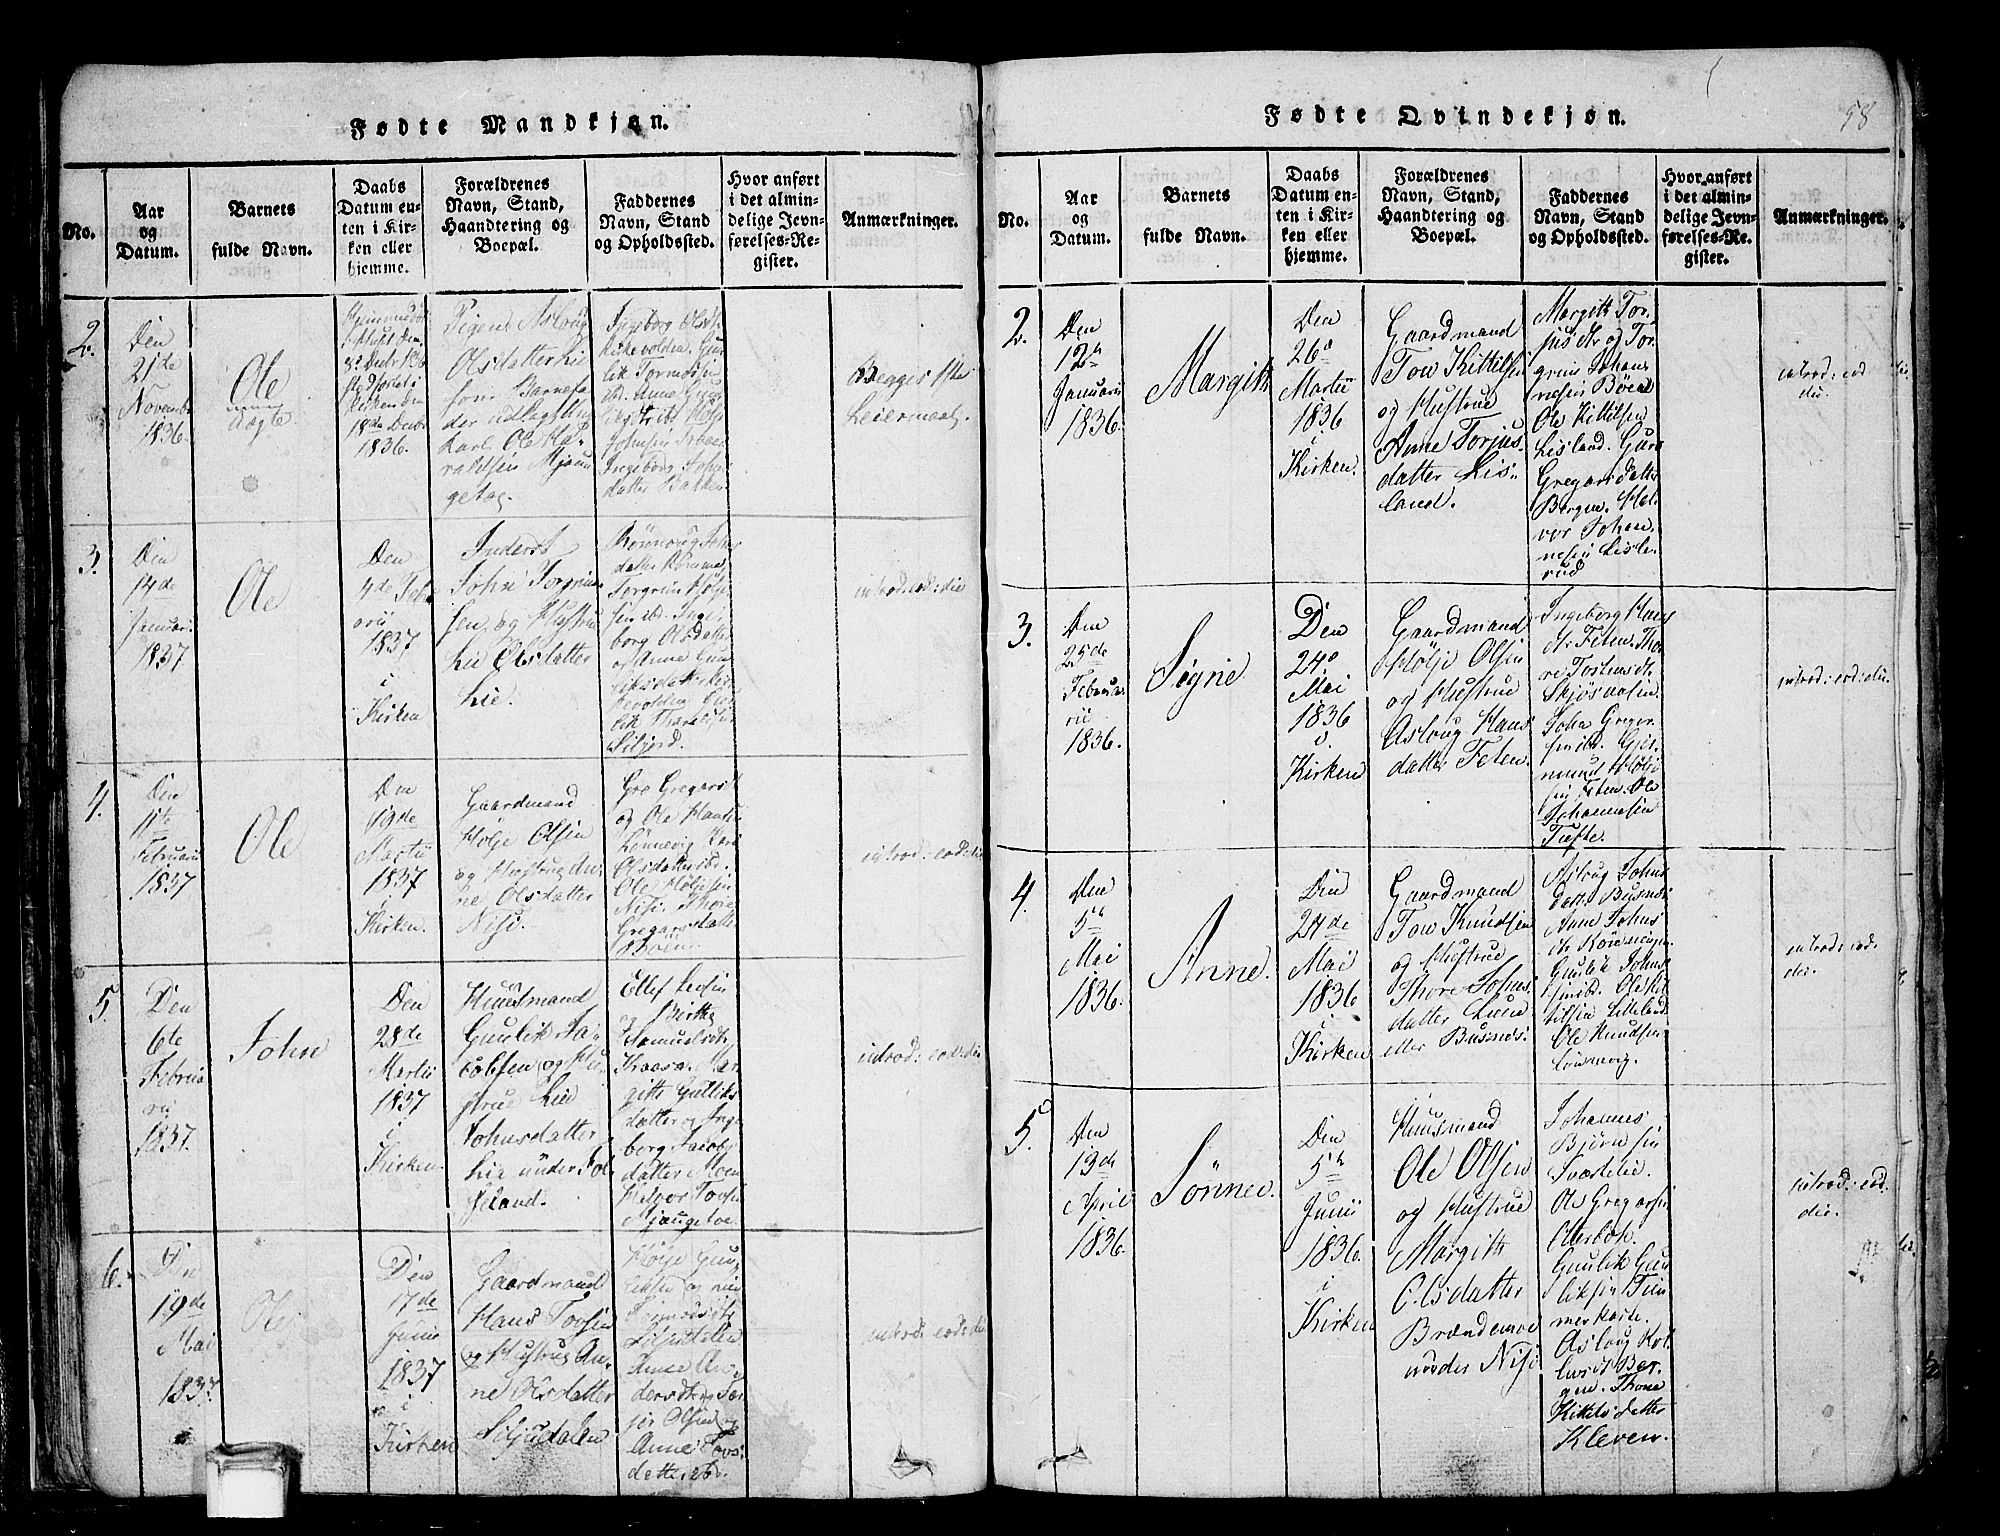 Fødte Mandkjøn.
No.
Aar
og
Datum.
Barnets
fulde Navn.
Daabs
Datum en-
ten i Kir-
ken eller
hjemme.
Forældrenes
Navn, Stand,
Haandtering og
Boepæl.
Faddernes
Navn, Stand
og Opholdssted.
Hvor anført
i det almin-
delige Jevn-
førelses-Re-
gister.
Anmærkninger.
2.
Den
21de
Novembr
1836.
Ole
uægte
18de Decbr
1836.
Pigen Aslaug
Olsdatter Lie
som Barnefa-
der udlagt Ung-
karl Ole Ha-
raldsen Mjaun-
getog.
Ingeborg Olsdtr
Kirkevolden. Gun-
Ingeborg Johns-
datter Bakken.
Begges 1ste
Leiermaal.
3.
Den
14de
Januari
1837
Ole
Den
4de Febr-
arii
1837
i
Kirken
Inderst
John Torgrim-
sen og Hustru
Liv Olsdatter
Lie.
Rønnoug Johns-
datter
Torgrim Høljes-
sen ibd. Inge-
borg Olsdatter
og Anne Gun-
liksdatter Kir-
kevolden
Siljord.
introd: eod: die
4.
Den
11te
Februarii
1837
Ole
Den
19de
Martii
1837
i
Kirken.
Gaardmand
Hølje Olsen
og Hustrue An-
ne Olsdatter
Nisi.
Gro Gregarsdtr
og Ole Hansen
Lønnevig Kari
Olsdatter ibd.
Ole Høljesen
Nisi. Thore
Gregarsdatter
Bøen
introd: eod: die
5.
Den
6te
Februa-
rii
1837.
John
Den
28de
Martii
1837
i
Kirken.
Huusmand
Gunlik Ja-
cobsen og Hu-
strue Liv
Johnsdatter
Lia under Fol-
seland.
Ellef
og Birthe
Samuelsdtr
Kaasa. Mar-
gith Gulliks-
datter og Inge-
borg Jacobs-
datter Moen
Halvor Tovsen
Mjaugetoe.
introd: eod: die
6.
Den
19de
Mai
1837.
Ole
Den
17de
Junii
1837
i
Kirken
Gaardmand
Hans Tovsen
og Hustrue An-
ne Olsdatter
Siljudalen
Hølje Gun-
liksen og
Siljudalen
Anne An-
dersdtr og Tar-
jei Olsen og
Anne Tovs-
datter ibd.
introd: eod: die
58
Fødte Qvindekjøn.
No.
Aar
og
Datum.
Barnets
fulde Navn.
Daabs
Datum en-
ten i Kir-
ken eller
hjemme.
Forældrenes
Navn, Stand,
Haandtering og
Boepæl.
Faddernes
Navn, Stand
og Opholdssted.
Hvor anført
i det almin-
delige Jevn-
førelses-Re-
gister.
Anmærkninger.
2.
Den
12te
Januarii
1836.
Margith
Den
26de
Martii
1836
i
Kirken.
Gaardmand
Tov Kittilsen
og Hustrue
Anne Torjus-
datter Lis-
land.
Margith Tor-
jusdtr og Tor-
grim Johan-
nesen Bøen
Ole Kittilsen
Lisland. Guro
Gregarsdatter
Bergen. Hal-
vor Johan-
nesen Lisle-
rud
introd: eod
die.
3.
Den
25de
Februa-
rii
1836.
Signe
Den
24de
Mai
1836
i
Kirken
Gaardmand
Hølje Olsen
og Hustrue
Aslaug Hans-
datter Feten.
Ingeborg Hans-
dtr Feten. Tho-
re Tostensdtr
John Gregar-
sen ibd. Gier-
mund Hølje-
sen Feten. Ole
Johannesen
Tufte.
introd: eod: die.
4.
Den
5te
Mai
1836.
Anne.
Den
24de
Mai
1836
i
Kirken
Gaardmand
Tov Knudsen
og Hustrue
Thore Johns-
datter Lien
eller Busnes.
Aslaug Johns-
datt. Busnes
Anne Johns-
dtr
Gunlik Johns-
sen ibd. Ole Kit-
tilsen Lisleland
Ole Knudsen
introd: eod:
die.
5.
Den
13de
April
1836.
Sønnev.
Den
5te
Junii
1836.
i
Kirken
Huusmand
Ole Olsen
og Hustrue
Margith
Olsdatter
Brændemoe
under Nisi
Johannes
Bjørnsen
Svartelie.
Ole Gregarsen
Olerbæk.
Gunlik Gun-
liksen Tim-
merkaste.
Aslaug Kol-
Ber-
gen. Thone
Kittelsdatter
Kleven.
introd: eod:
die.